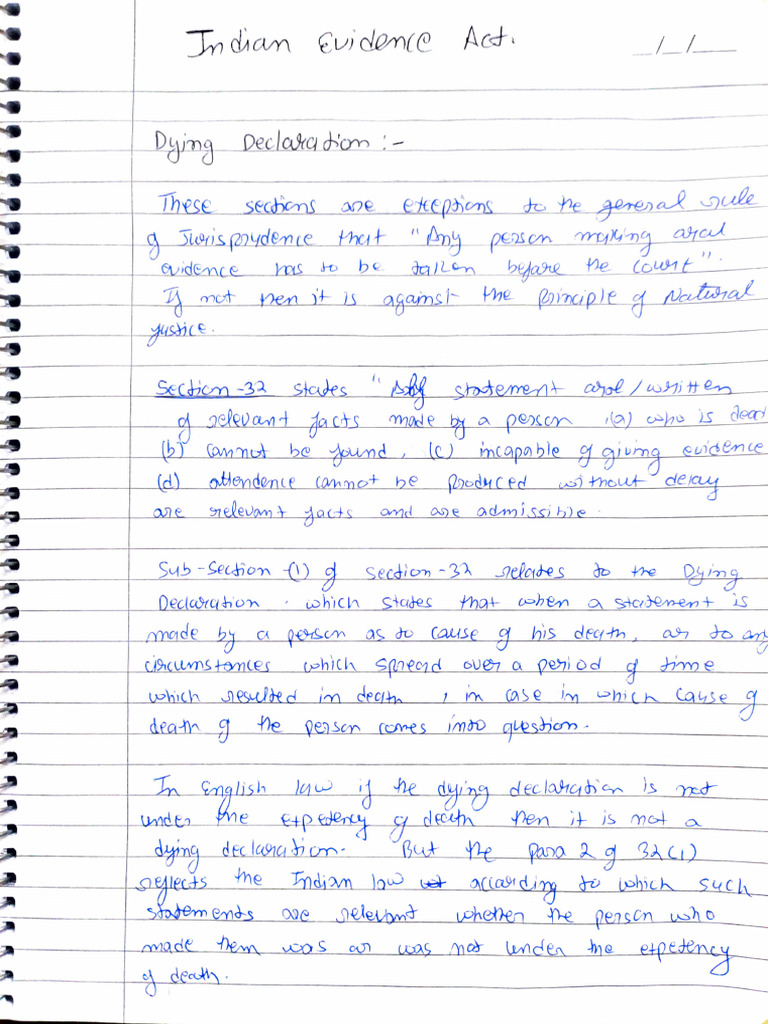 Indian Evidence Act.
_/_/__
Dying Declaration :-
These sections are exceptions to the general rule
of Jurisprudence that "Any person making oral
evidence has to be taken before the court".
If not then it is against the principle of Natural
justice.
Section-32 states " statement orol/written
of relevant facts made by a person ,(a) who is dead
(b) cannot be found, (c) incapable of giving evidence
(d) attendence cannot be produced without delay
are relevant facts and are admissible.
Sub-Section-(1) of section-32 relates to the Dying
Declaration. which states that when a statement is
made by a person as to cause of his death, or to any
circumstances which spread over a period of time
which resulted in death , in case in which cause of
death of the person comes into question.
In English law if the dying declaration is not
under the expetency of death then it is not a
dying declaration. But the para 2 of 32(1)
reflects the Indian law according to which such
statements are relevant whether the person who
made them was or was not under the expetency
of death.